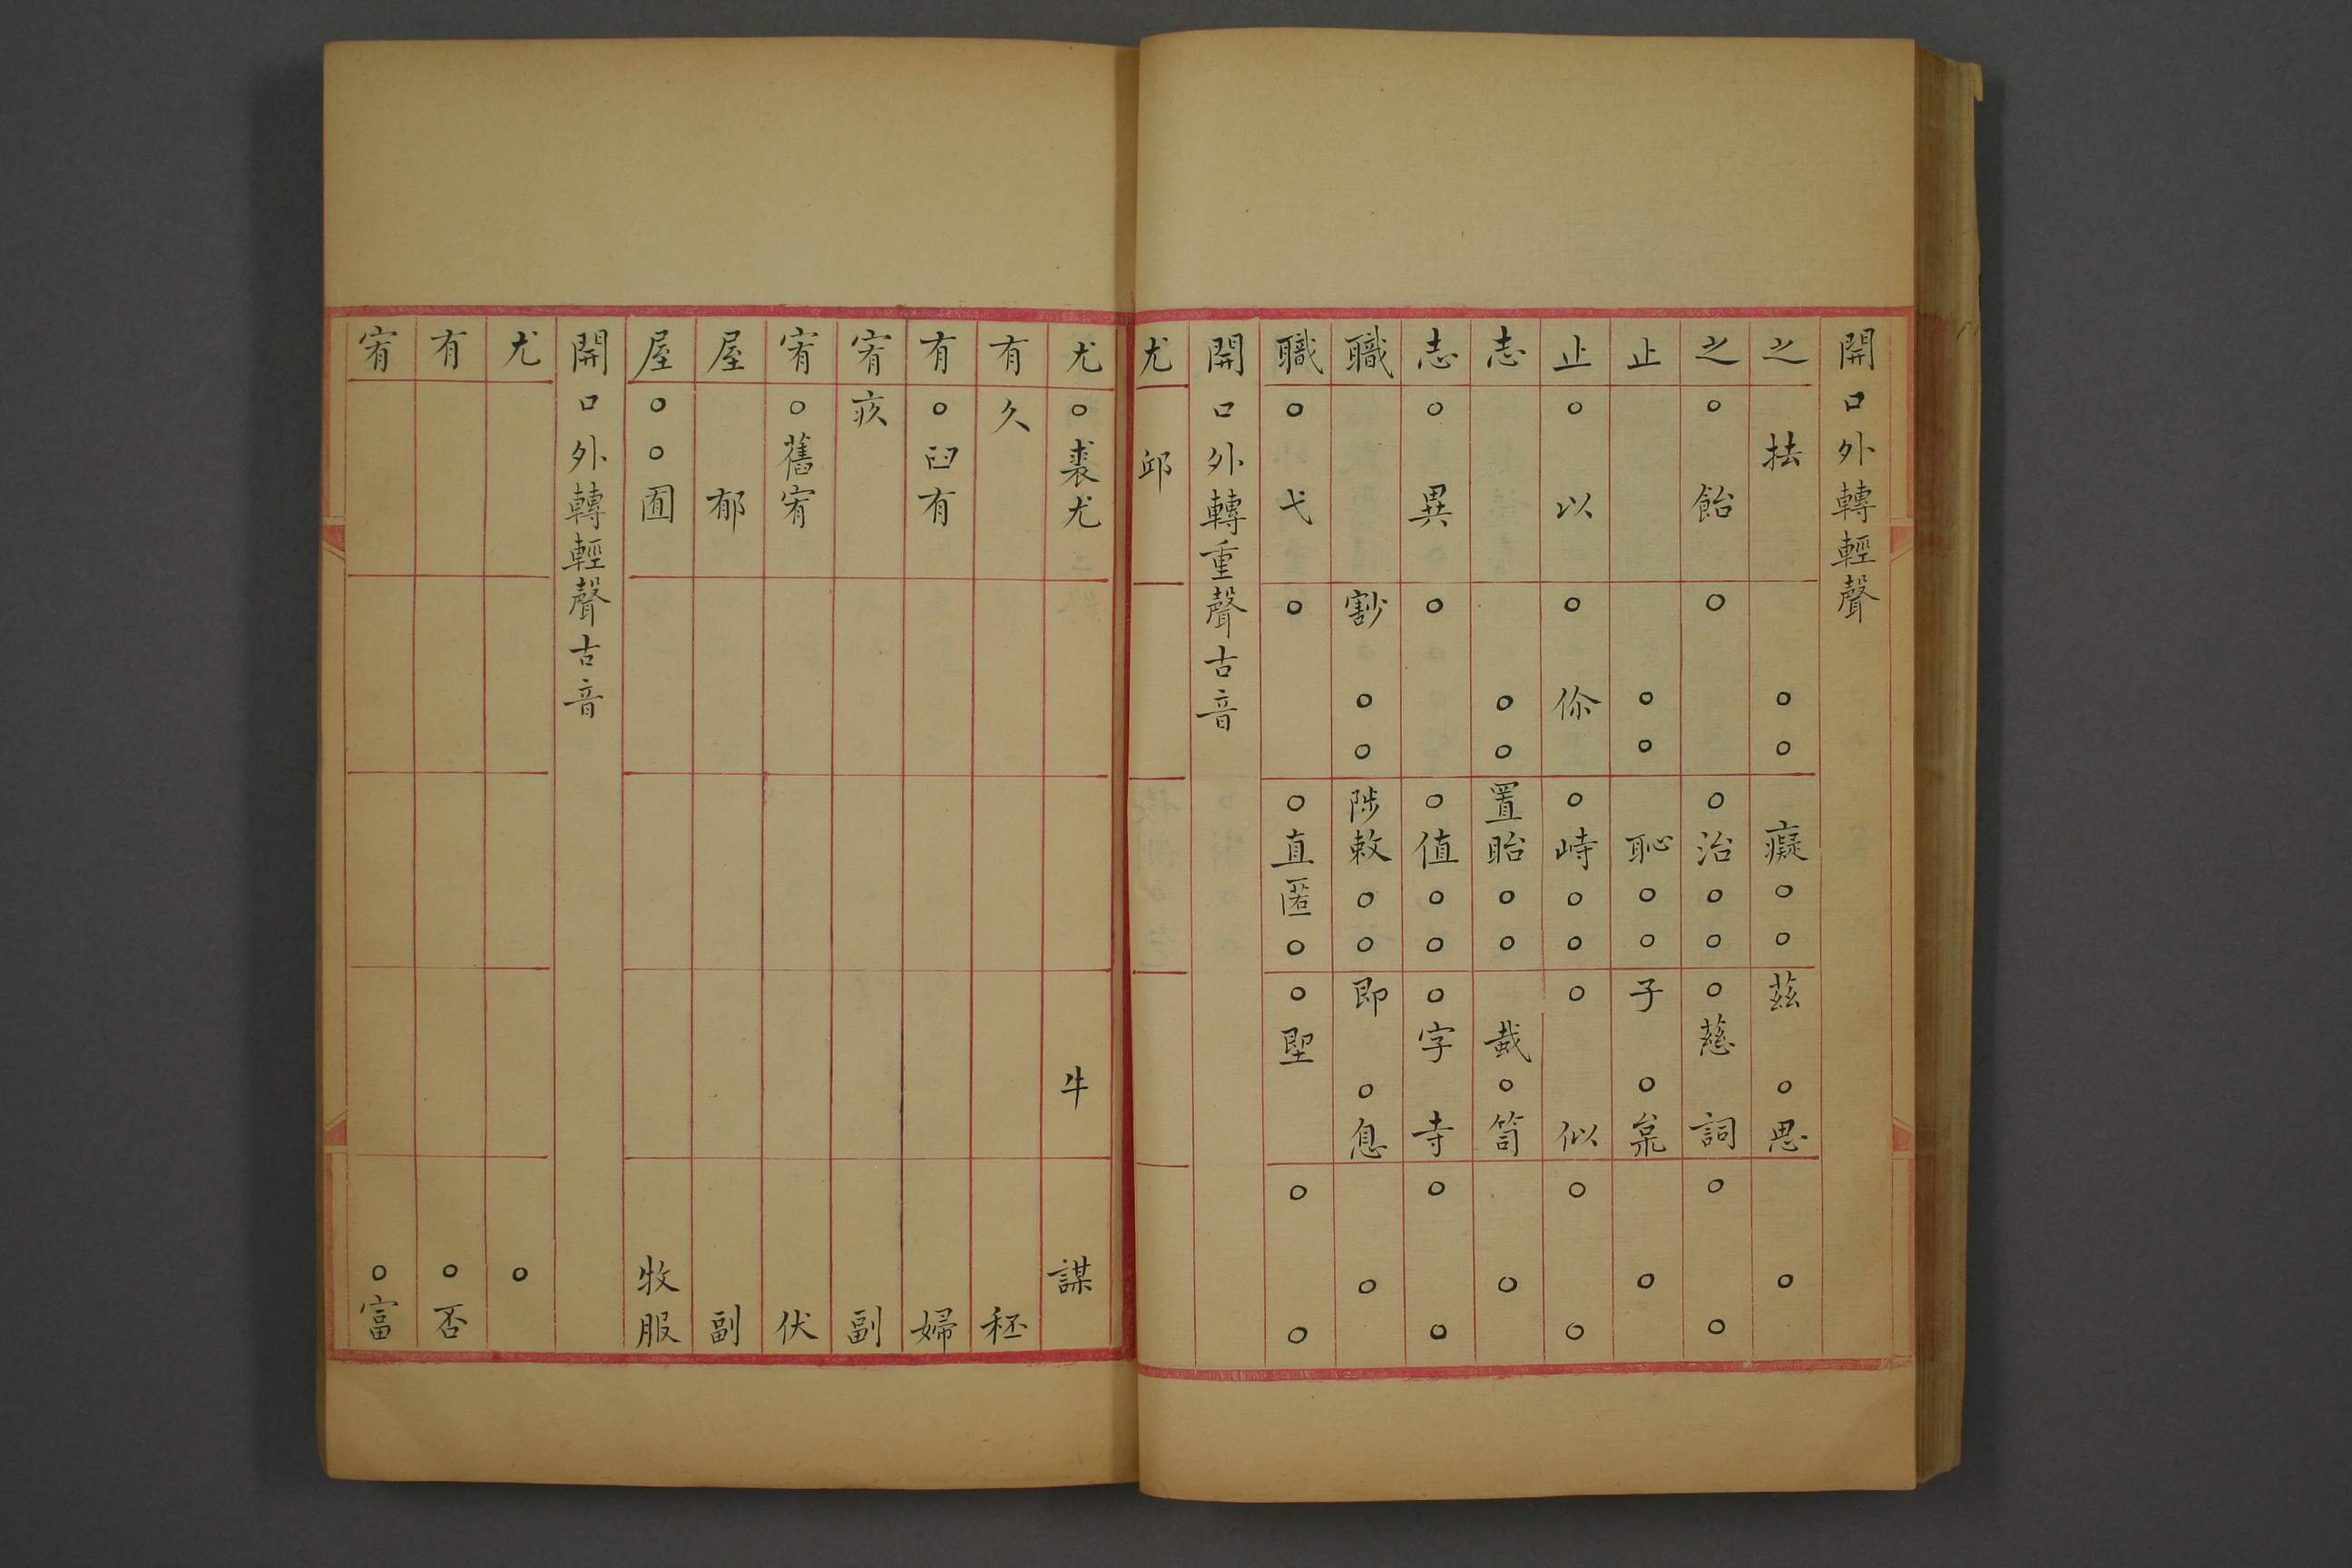 開口外轉輕聲
之 抾 ○ ○ 癡 ○ ○ 茲 ○ 思 ○
之 ○ 飴 ○ ○ 治 ○ ○ ○ 慈 詞 ○ ○
止 ○ ○ 恥 ○ ○ 子 ○ 枲 ○
止 ○ 以 ○ 伱 ○ 峙 ○ ○ ○ 似 ○ ○
志 ○ ○ 置 眙 ○ ○ 載 ○ 笥 ○
志 ○ 異 ○ ○ 值 ○ ○ ○ 字 寺 ○ ○
職 ○ ○ 陟 敕 ○ ○ 即 ○ 息 ○
職 ○ 弋 ○ ○ 直 匿 ○ ○ 堲 ○ ○
開口外轉重聲古音
尤 邱
尤 ○ 裘 尤 牛 謀
有 久 秠
有 ○ 臼 有 婦
宥 疚 副
宥 ○ 舊 宥 伏
屋 郁 副
屋 ○ ○ 囿 牧 服
開口外轉輕聲古音
尤 ○
有 ○ 否
宥 ○ 富